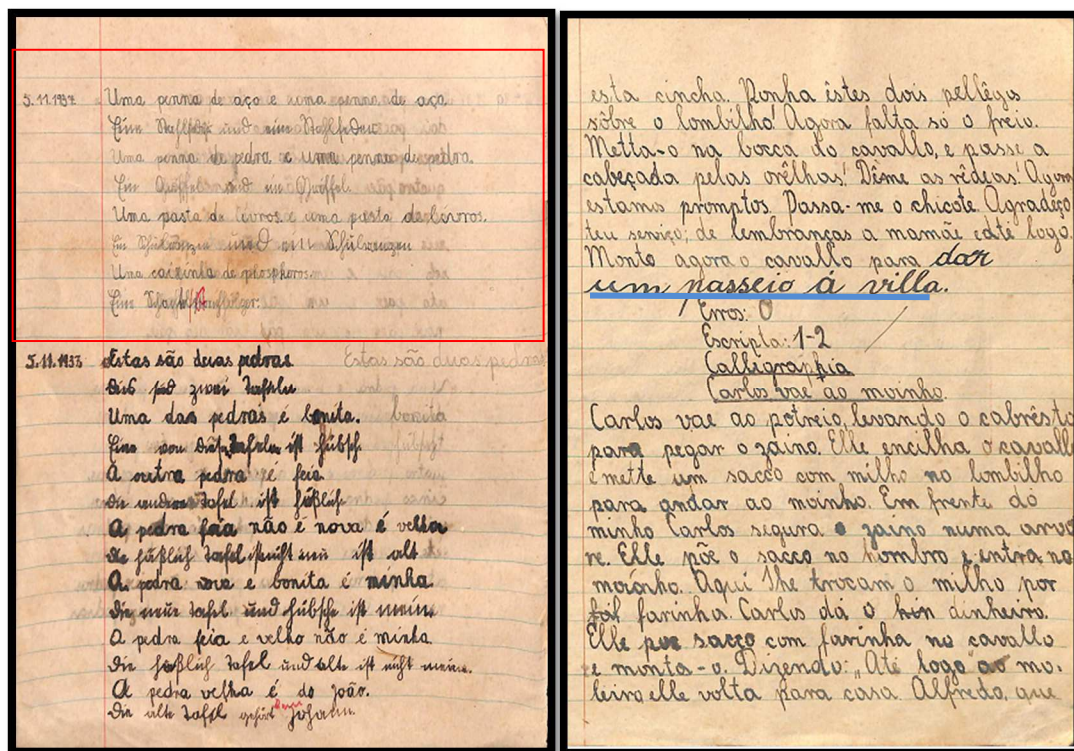 5.11.1937. Uma penna de aço e uma penna de aço
Eine Stahlfeder und eine Stahlfeder.
Uma penna de pedra e uma penna de pedra.
Ein Griffel und ein Griffel.
Uma pasta de livros e uma pasta de livros.
Ein Schulranzen und ein Schulranzen
Uma caixinha de phosphoros.
Eine Schachtel
5.11.1937. Estas são duas pedras Estas são duas pedras
Dies sind zwei Tafeln
Uma das pedras é bonita. bonita
Eine von diesen Tafeln ist hübsch
A outra pedra é feia.
Die andere Tafel ist häßlich.
A pedra feia não é nova é velha
Die häßlich Tafel ist nicht neu ist alt
A pedra nova e bonita é minha.
Die neue Tafel und hübsche ist mein.
A pedra feia e velha não é minha.
Die häßlich Tafel und alte ist nicht mein.
A pedra velha é do João.
Die alte Tafel gehört dem Johann.
esta cincha. Ponha êstes dois pellêgos
sôbre o lombilho! Agora falta só o freio.
Metta-o na bocca do cavallo, e passe a
cabeçada pelas orêlhas! Dême as rêdeas! Agora
estamos promptos. Passa-me o chicote. Agradeço
teu serviço; de lembranças a mamãe e até logo.
Monto agora o cavallo para dar
um passeio á villa.
Erros: 0
Escripta: 1-2
Calligraphia
Carlos vae ao moinho.
Carlos vae ao potreio, levando o cabrêsto
para pegar o zaino. Elle encilha o cavallo
e mette um sacco com milho no lombilho
para andar ao moinho. Em frente do
minho Carlos segura o zaino numa arvo
re. Elle põe o sacco no hombro e entra no
moinho. Aqui lhe trocam o milho por
farinha. Carlos dá o dinheiro.
Elle poe sacco com farinha no cavallo
e monta-o. Dizendo: „Até logo" ao mo-
leiro elle volta para casa. Alfredo, que